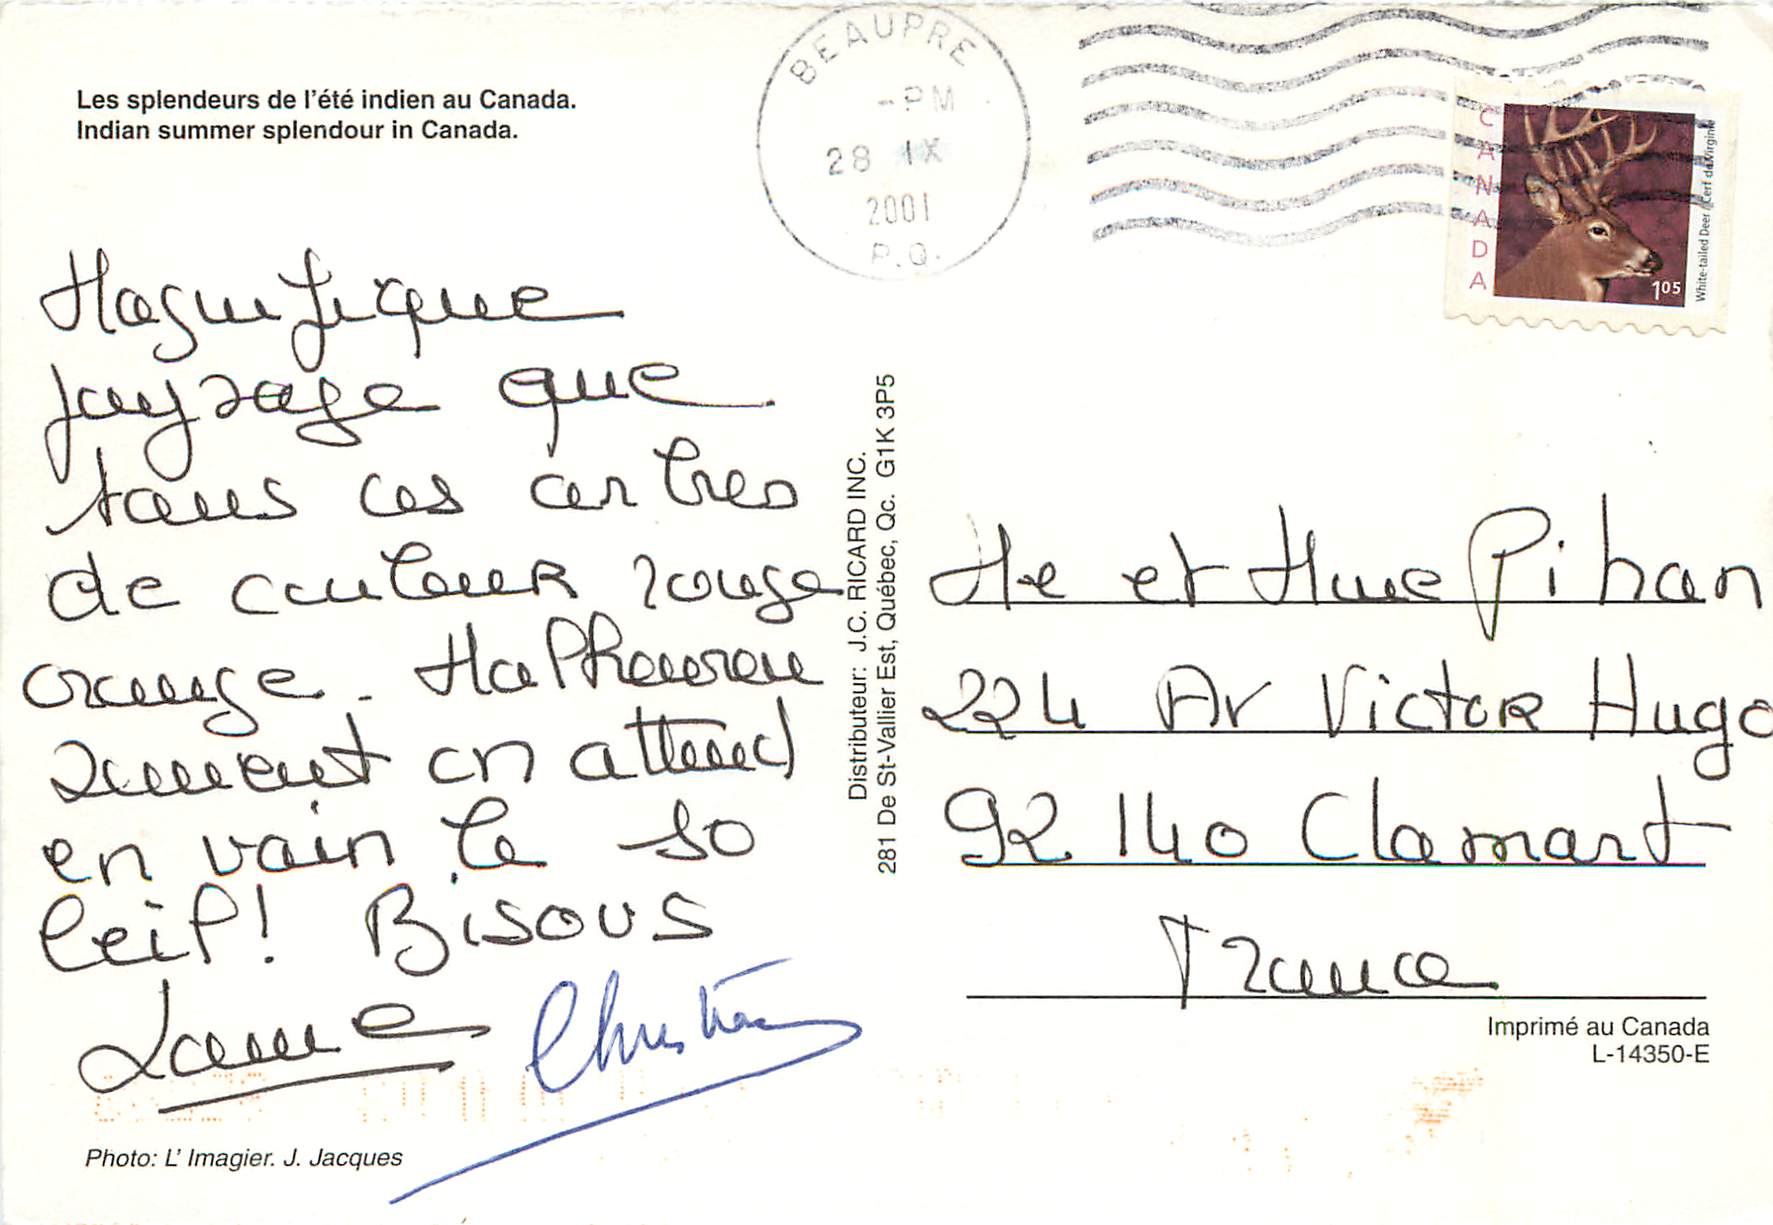 Les splendeurs de l'été indien au Canada.
Indian summer splendour in Canada.
BEAUPRE
-PM
28 IX
2001
P.Q.
CANADA
White-tailed Deer / Cerf de Virginie
105
Magnifique
paysage que
tous ces arbres
de couleur rouge
orange. Malheureu
sement on attend
en vain le so
leil! Bisous
Christian
Distributeur: J.C. RICARD INC.
281 De St-Vallier Est, Québec, Qc. G1K 3P5
Me et Mme Pihan
224 Av Victor Hugo
92 140 Clamart
France
Imprimé au Canada
L-14350-E
Photo: L' Imagier. J. Jacques